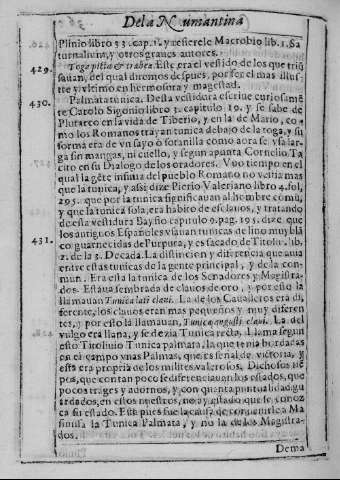 De la Numantina
Plinio libro 33. cap. 1. y refierele Macrobio lib. 1. Sa
turnalium, y otros graues autores.
429. Toga picta & trabea Este era el vestido de los que triū
fauan, del qual diremos despues, por ser el mas illus-
tre y vltimo en hermosura y magestad.
430. Palmata tunica. Desta vestidura escriue curiosamē
te Carolo Sigonio libro 3. capitulo 19. y se sabe de
Plutarco en la vida de Tiberio, y en la de Mario, co-
mo los Romanos trayan tunica debajo de la toga, y su
forma era de vn sayo ò sotanilla como aora se vsa lar-
ga sin mangas, ni cuello, y segun apunta Cornelio Ta
cito en su Dialogo de los oradores. Vuo tiempo en el
qual la gēte infima del pueblo Romano no vestia mas
que la tunica, y assi dize Pierio Valeriano libro 4. fol.
295. que por la tunica significauan al hombre comū,
y que la tunica sola, era habito de esclauos, y tratando
de esta vestidura Baysio capitulo 9. pag. 195. dize que
los antiguos Españoles vsauan tunicas de lino muy blā
431. co guarnecidas de Purpura, y es sacado de Tito Liu. lib.
2. de la 3. Decada. La distincion y diferencia que auia
entre estas tunicas de la gente principal, y de la co-
mun. Era esta la tunica de los Senadores y Magistra-
dos. Estaua sembrada de clauos de oro, y por esso la
llamauan Tunica lati claui. La de los Caualleros era di
ferente, los clauos eran mas pequeños y muy diferen
tes, y por esso la llamauan, Tunica angusti claui. La del
vulgo era llana, y se dezia Tunica recta, Llama segun
esto Tito Liuio Tunica palmata, la que tenia bordadas
en el campo vnas Palmas, que es señal de victoria, y
esta era propria de los milites valerosos. Dichosos tiē
pos, que con tan poco se diferenciauan los estados, que
pocos trages y adornos, y con quenta puntualidad gu
ardados, en estos nuestros, no ay estado que se conoz
ca su estado. Este pues fue la causa de conuenirle a Ma
sinisa la Tunica Palmata, y no la de los Magistra-
dos.
Dema